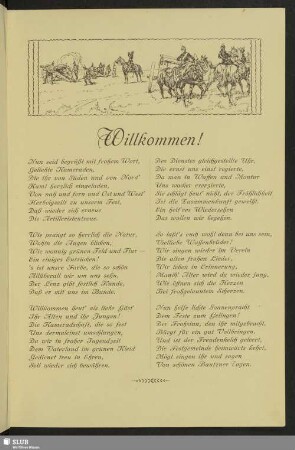 Willkommen!
Nun seid begrüßt mit frohem Wort,
Geliebte Kameraden,
Die ihr von Süden und von Nord
Hierzu herzlich eingeladen,
Von nah und fern und Ost und West
Herbeigeeilt zu unserm Fest,
Daß wieder sich erneue
Die Artilleristentreue.
Wie prangt so herrlich die Natur,
Wohin die Augen blicken,
Wie wonnig grünen Feld und Flur –
Ein einziges Entzücken!
's ist unsre Farbe, die so schön
Allüberall wir um uns sehn.
Der Lenz gibt festlich Kunde,
Daß er mit uns im Bunde.
Willkommen drum! als liebe Gäste
Ihr Alten und ihr Jungen!
Die Kameradschaft, die so fest
Uns dermaleinst umschlungen,
Da wir in froher Jugendzeit
Dem Vaterland im grünen Kleid
Gedienet treu in Ehren,
Soll wieder sich bewähren.
Der Dienstes gleichgestellte Uhr,
Die ernst uns einst regierte,
Da man in Waffen und Montur
Uns wacker exerzierte,
Sie schlägt heut nicht, der Fröhlichkeit
Ist die Zusammenkunft geweiht.
Ein heil'ges Wiedersehen
Das wollen wir begehen.
So laßt's euch wohl denn bei uns sein,
Vielliebe Waffenbrüder!
Wir singen wieder im Verein
Die alten frohen Lieder,
Wir leben in Erinnerung,
Manch' Alter wird da wieder jung,
Wir öffnen sich die Herzen
Bei frohgelauntem Scherzen.
Nun helfe lichte Sonnenpracht
Dem Feste zum Gelingen!
Der Frohsinn, den ihr mitgebracht,
Mögt für ein gut Vollbringen.
Und ist der Freudenkelch geleert,
Die Festgemeinde heimwärts kehrt,
Mögt singen ihr und sagen
Von schönen Bautzner Tagen.
SLUB